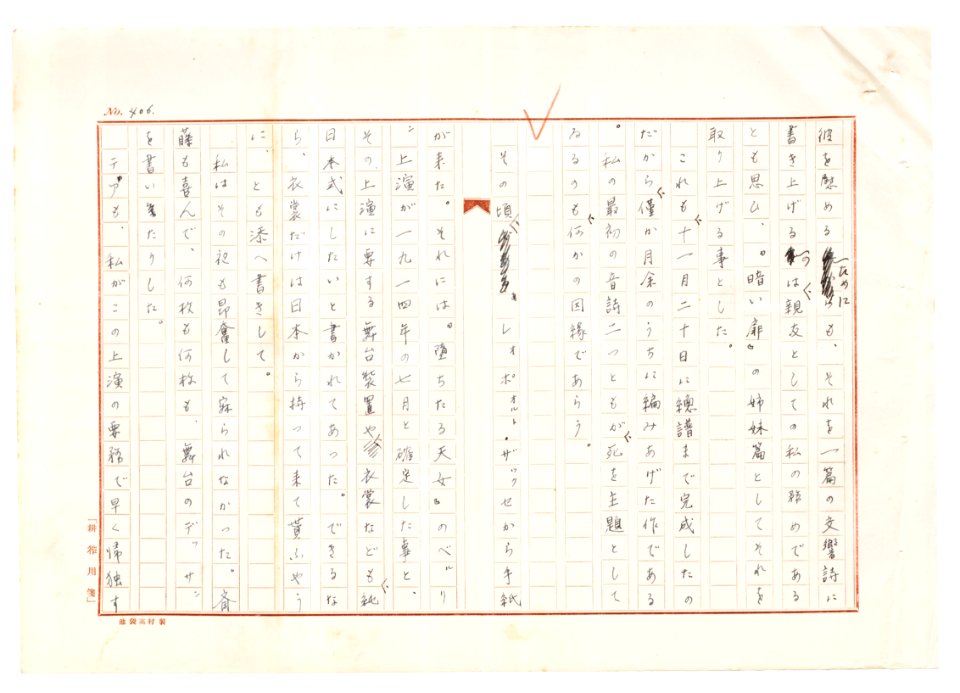 No. 406.
彼を慰めるためにも、それを一篇の交響詩に
書き上げるのは親友としての私の務めである
とも思ひ、『暗い扉』の姉妹篇としてそれを
取り上げる事とした。
これも十一月二十日に總譜まで完成したの
だから僅か月余のうちに編みあげた作である
。私の最初の音詩二つともが死を主題として
ゐるのも何かの因縁であらう。
その頃、レオポオルト・ザックセから手紙
が来た。それには『堕ちたる天女』のベルリ
ン上演が一九一四年の七月と確定した事と、
その上演に要する舞台装置や衣裳なども純
日本式にしたいと書かれてあった。できるな
ら、衣裳だけは日本から持って来て貰ふやう
に、とも添へ書きして。
私はその祝も昂奮して寐られなかった。斎
藤も喜んで、何枚も何枚も、舞台のデッサン
を書いたりした。
テアも、私がこの上演の要務で早く帰独す
「耕筰用箋」
池袋高村製